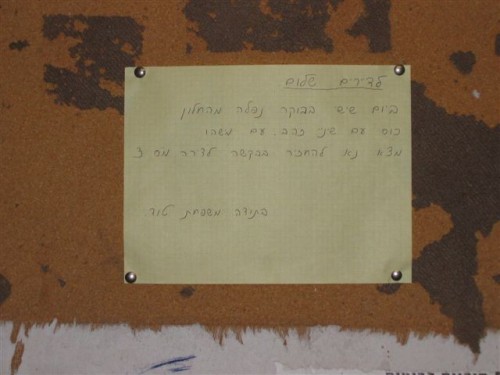 לדיירים שלום
ביום שישי בבוקר נפלה מהחלון
כוס עם שיני זהב. עם מישהו
מצא נא להחזיר בבקשה לדירה מס 3
בתודה משפחת טור